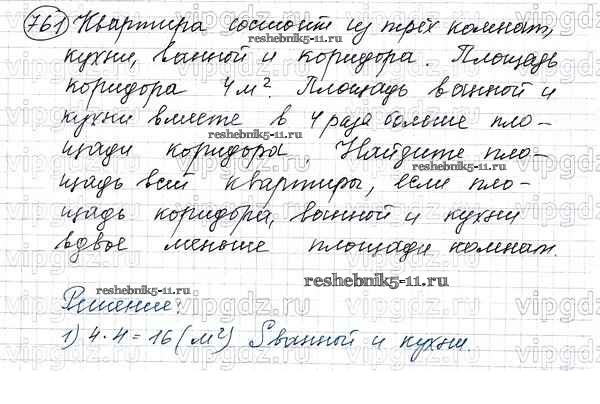 761 Квартира состоит из трёх комнат,
кухни, ванной и коридора. Площадь
коридора 4 м². Площадь ванной и
кухни вместе в 4 раза больше пло-
щади коридора. Найдите пло-
щадь всей квартиры, если пло-
щадь коридора, ванной и кухни
вдвое меньше площади комнат.
reshebnik5-11.ru
Решение:
1) 4·4=16 (м²) Sванной и кухни.